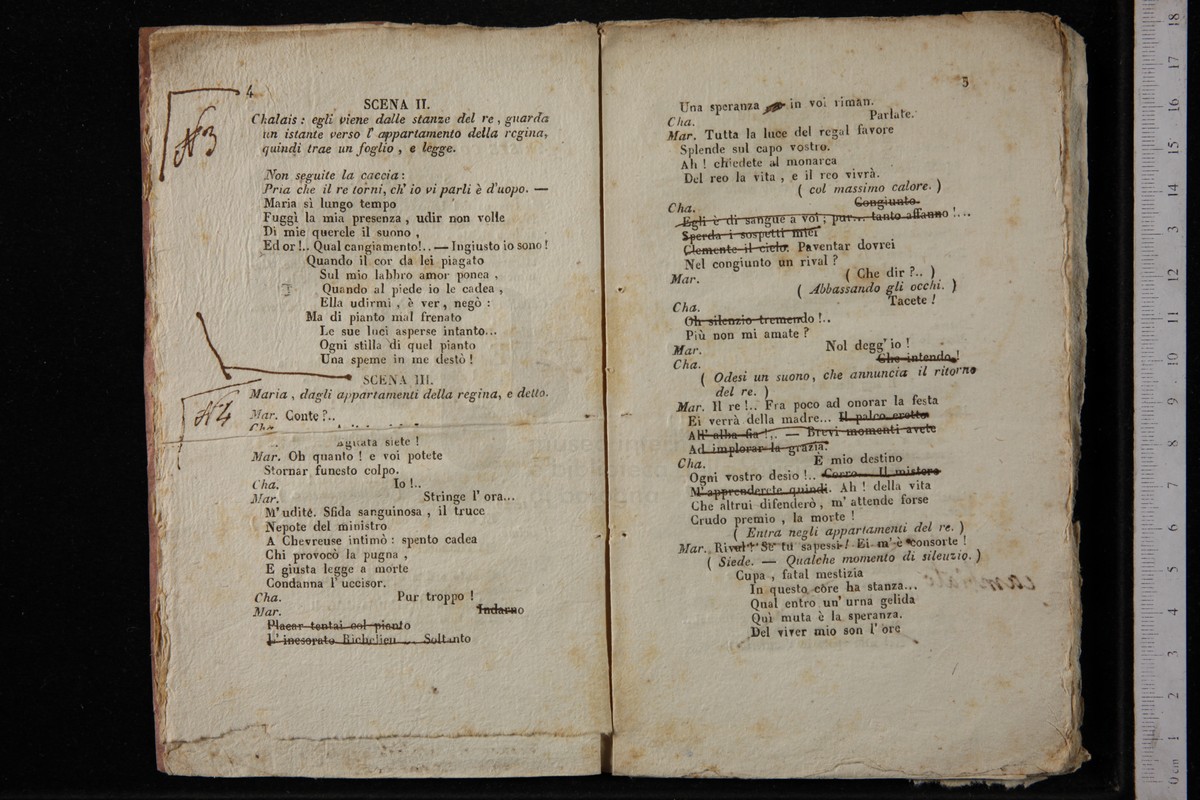 4
SCENA II.
Chalais : egli viene dalle stanze del re , guarda
un istante verso l' appartamento della regina,
quindi trae un foglio , e legge.
N3
Non seguite la caccia :
Pria che il re torni, ch' io vi parli è d'uopo. —
Maria sì lungo tempo
Fuggì la mia presenza , udir non volle
Di mie querele il suono ,
Ed or !.. Qual cangiamento!.. — Ingiusto io sono !
Quando il cor da lei piagato
Sul mio labbro amor ponea ,
Quando al piede io le cadea ,
Ella udirmi , è ver , negò :
Ma di pianto mal frenato
Le sue luci asperse intanto...
Ogni stilla di quel pianto
Una speme in me destò !
SCENA III.
Maria , dagli appartamenti della regina, e detto.
N4
Mar. Conte ?..
Cha.
siete !
Mar. Oh quanto ! e voi potete
Stornar funesto colpo.
Cha. Io !..
Mar. Stringe l' ora...
M' udite. Sfida sanguinosa , il truce
Nepote del ministro
A Chevreuse intimò : spento cadea
Chi provocò la pugna ,
E giusta legge a morte
Condanna l' uccisor.
Cha. Pur troppo !
Mar. Indarno
Placar tentai col pianto
L' inesorato Richelieu ... Soltanto
5
Una speranza in voi riman.
Cha. Parlate.
Mar. Tutta la luce del regal favore
Splende sul capo vostro.
Ah ! chiedete al monarca
Del reo la vita , e il reo vivrà.
( col massimo calore. )
Cha. Congiunto.
Egli è di sangue a voi ; pur... tanto affanno !....
Sperda i sospetti miei
Clemente il cielo. Paventar dovrei
Nel congiunto un rival ?
Mar. ( Che dir ?.. )
( Abbassando gli occhi. )
Cha. Tacete !
Oh silenzio tremendo !..
Più non mi amate ?
Mar. Nol degg' io !
Cha. Che intendo !
( Odesi un suono, che annuncia il ritorno
del re. )
Mar. Il re !.. Fra poco ad onorar la festa
Ei verrà della madre... Il palco eretto
All' alba fia !.. — Brevi momenti avete
Ad implorar la grazia.
Cha. È mio destino
Ogni vostro desio !.. Corro... Il mistero
M' apprenderete quindi. Ah ! della vita
Che altrui difenderò , m' attende forse
Crudo premio , la morte !
( Entra negli appartamenti del re. )
Mar. Rival ! Se tu sapessi ! Ei m' è consorte !
( Siede. — Qualche momento di silenzio. )
Cupa , fatal mestizia
In questo core ha stanza...
Qual entro un' urna gelida
Quì muta è la speranza.
Del viver mio son l' ore